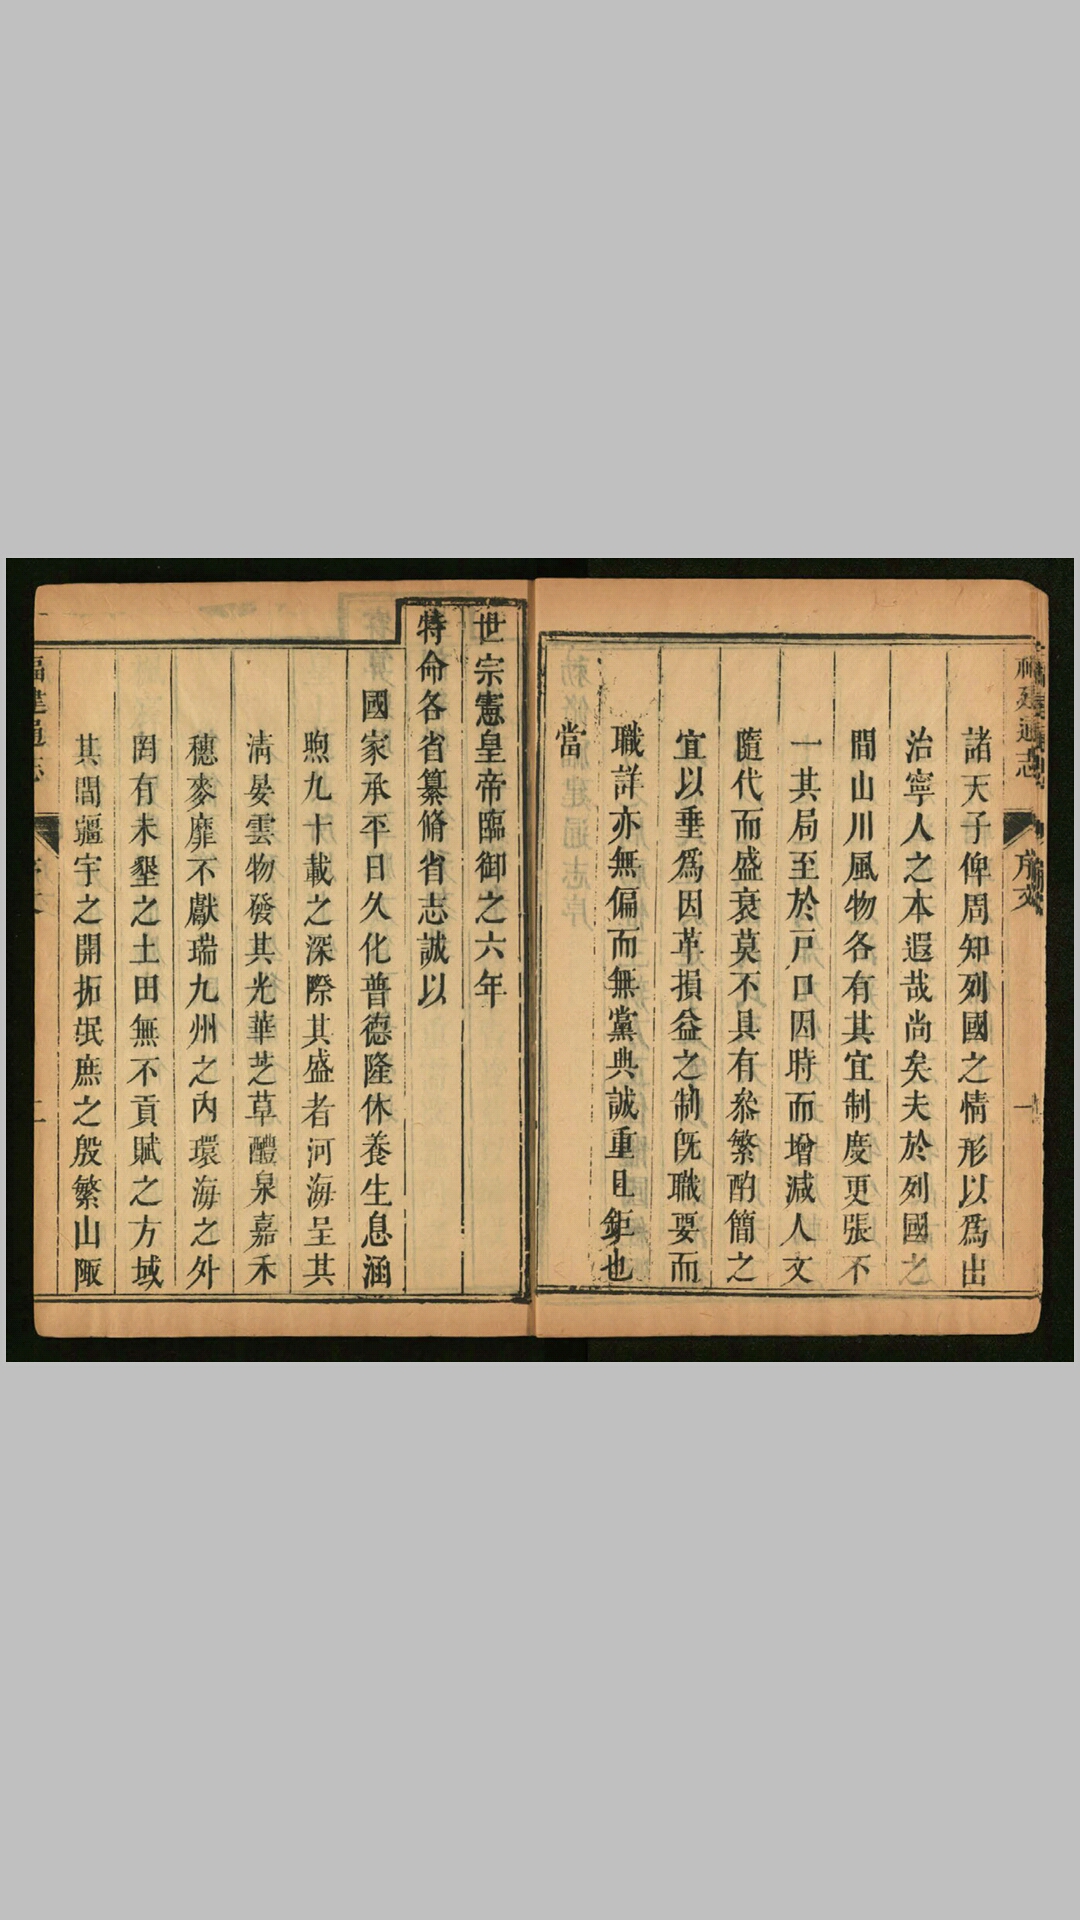 福建通志
序文
一
諸天子俾周知列國之情形以爲出
治寧人之本遐哉尚矣夫於列國之
間山川風物各有其宜制度更張不
一其局至於戸口因時而增減人文
隨代而盛衰莫不具有叅繁酌簡之
宜以垂爲因革損益之制旣職要而
職詳亦無偏而無黨典誠重且鉅也
當
世宗憲皇帝臨御之六年
特命各省纂脩省志誠以
國家承平日久化普德隆休養生息涵
煦九十載之深際其盛者河海呈其
淸晏雲物發其光華芝草醴泉嘉禾
穗麥靡不獻瑞九州之內環海之外
罔有未墾之土田無不貢賦之方域
其間疆宇之開拓氓庶之殷繁山陬
福建通志
二